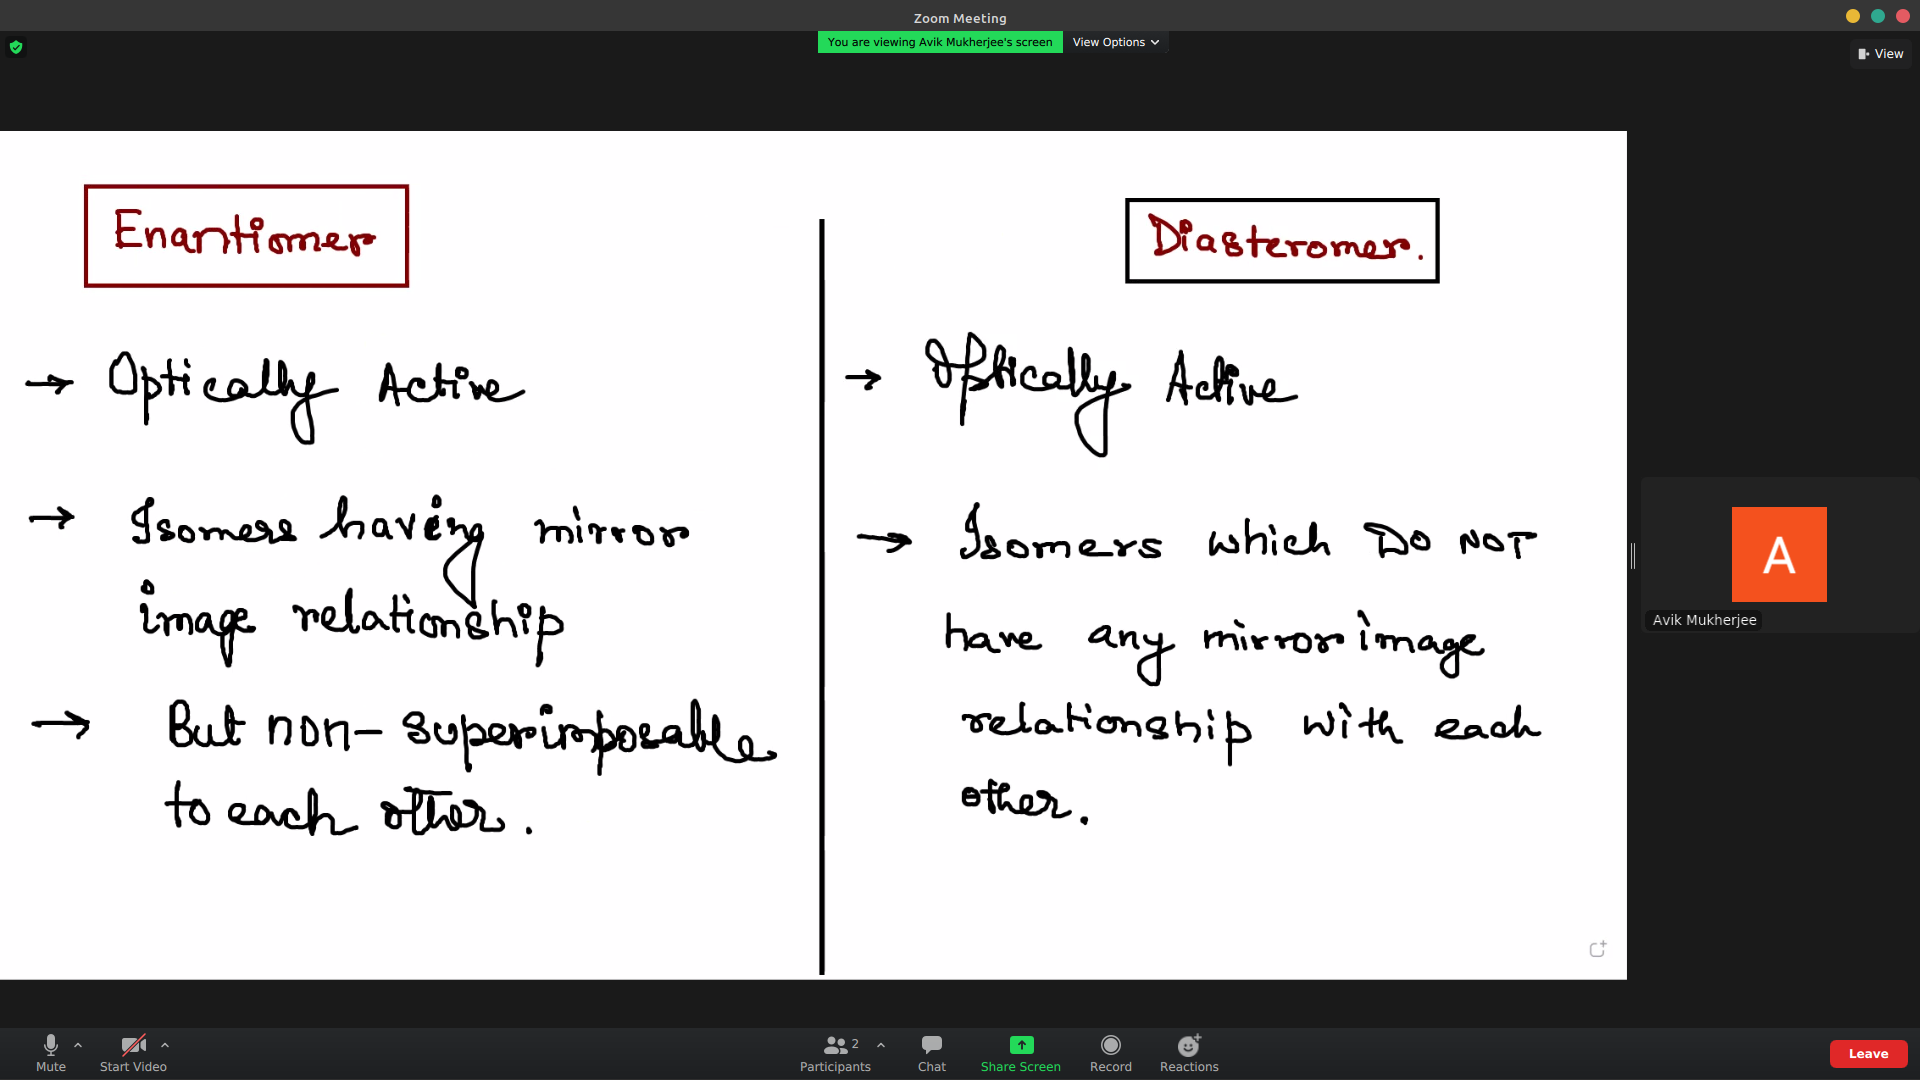 Zoom Meeting
You are viewing Avik Mukherjee's screen View Options
View
Enantiomer
→ Optically Active
→ Isomers having mirror
image relationship
→ But non-superimposable
to each other.
Diasteromer.
→ Optically Active
→ Isomers which DO NOT
have any mirror image
relationship with each
other.
A
Avik Mukherjee
Mute
Start Video
Participants 2
Chat
Share Screen
Record
Reactions
Leave